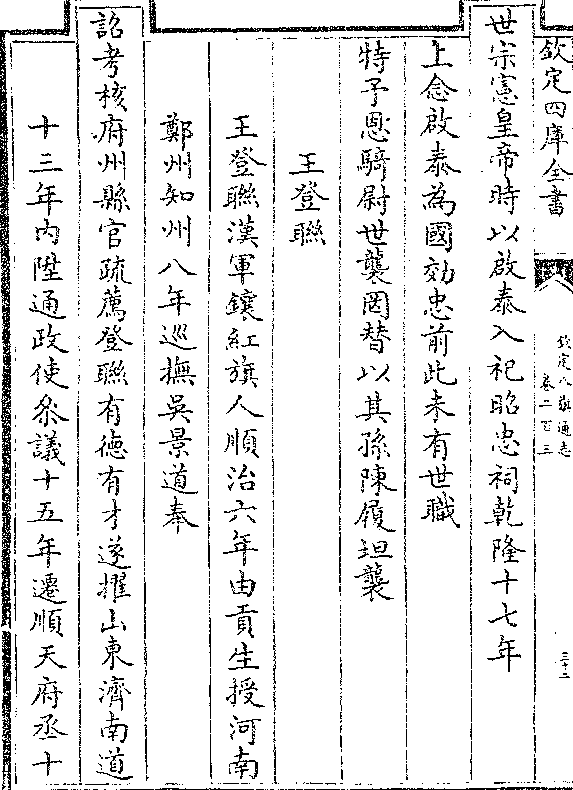 欽定四庫全書
欽定八旗通志
卷二百三
三十二
世宗憲皇帝時以啟泰入祀昭忠祠乾隆十七年
上念啟泰為國効忠前此未有世職
特予恩騎尉世襲罔替以其孫陳履坦襲
王登聯
王登聯漢軍鑲紅旗人順治六年由貢生授河南
鄭州知州八年巡撫吳景道奉
詔考核府州縣官疏薦登聯有德有才遂擢山東濟南道
十三年內陞通政使叅議十五年遷順天府丞十